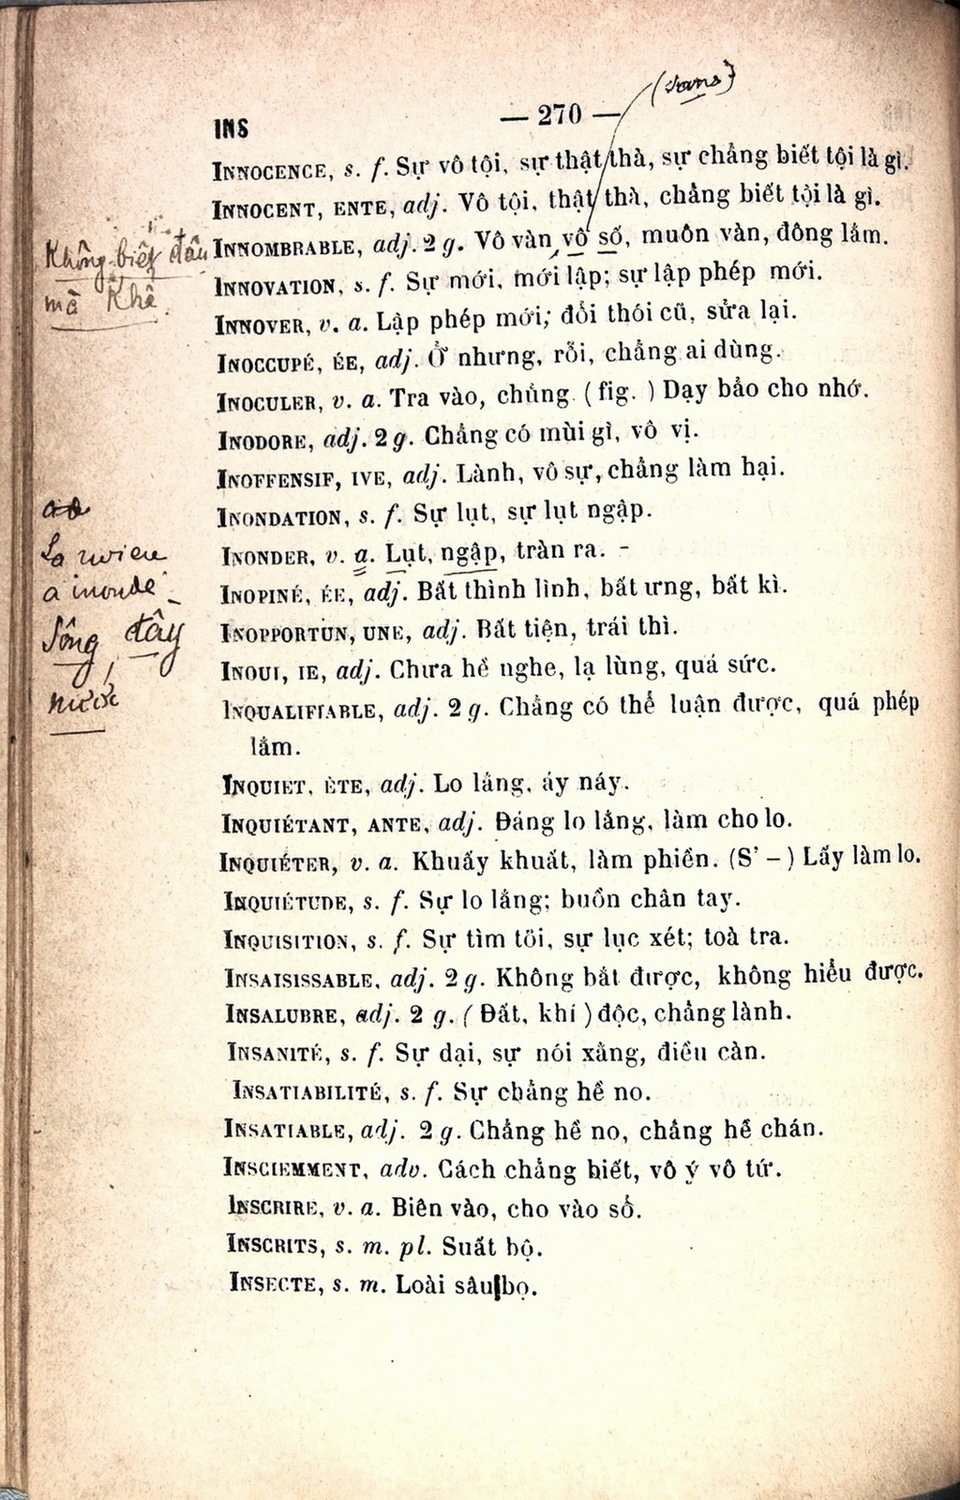 (sans)
INS
— 270 —
INNOCENCE, s. f. Sự vô tội, sự thật thà, sự chẳng biết tội là gì.
INNOCENT, ENTE, adj. Vô tội, thật thà, chẳng biết tội là gì.
INNOMBRABLE, adj. 2 g. Vô vàn, vô số, muôn vàn, đông lắm.
INNOVATION, s. f. Sự mới, mới lập; sự lập phép mới.
INNOVER, v. a. Lập phép mới; đổi thói cũ, sửa lại.
INOCCUPÉ, ÉE, adj. Ở nhưng, rỗi, chẳng ai dùng.
INOCULER, v. a. Tra vào, chủng. (fig.) Dạy bảo cho nhớ.
INODORE, adj. 2 g. Chẳng có mùi gì, vô vị.
INOFFENSIF, IVE, adj. Lành, vô sự, chẳng làm hại.
INONDATION, s. f. Sự lụt, sự lụt ngập.
INONDER, v. a. Lụt, ngập, tràn ra. -
INOPINÉ, ÉE, adj. Bất thình lình, bất ưng, bất kì.
INOPPORTUN, UNE, adj. Bất tiện, trái thì.
INOUI, IE, adj. Chưa hề nghe, lạ lùng, quá sức.
INQUALIFIABLE, adj. 2 g. Chẳng có thể luận được, quá phép
lắm.
INQUIET, ÈTE, adj. Lo lắng, áy náy.
INQUIÉTANT, ANTE, adj. Đáng lo lắng, làm cho lo.
INQUIÉTER, v. a. Khuấy khuất, làm phiền. (S' – ) Lấy làm lo.
INQUIÉTUDE, s. f. Sự lo lắng; buồn chân tay.
INQUISITION, s. f. Sự tìm tòi, sự lục xét; toà tra.
INSAISISSABLE, adj. 2 g. Không bắt được, không hiểu được.
INSALUBRE, adj. 2 g. (Đất, khí) độc, chẳng lành.
INSANITÉ, s. f. Sự dại, sự nói xằng, điều càn.
INSATIABILITÉ, s. f. Sự chẳng hề no.
INSATIABLE, adj. 2 g. Chẳng hề no, chẳng hề chán.
INSCIEMMENT, adv. Cách chẳng biết, vô ý vô tứ.
INSCRIRE, v. a. Biên vào, cho vào sổ.
INSCRITS, s. m. pl. Suất bộ.
INSECTE, s. m. Loài sâu bọ.
Không biết đâu
mà Khê.
La rivière
a inondé
Sông đầy
nước